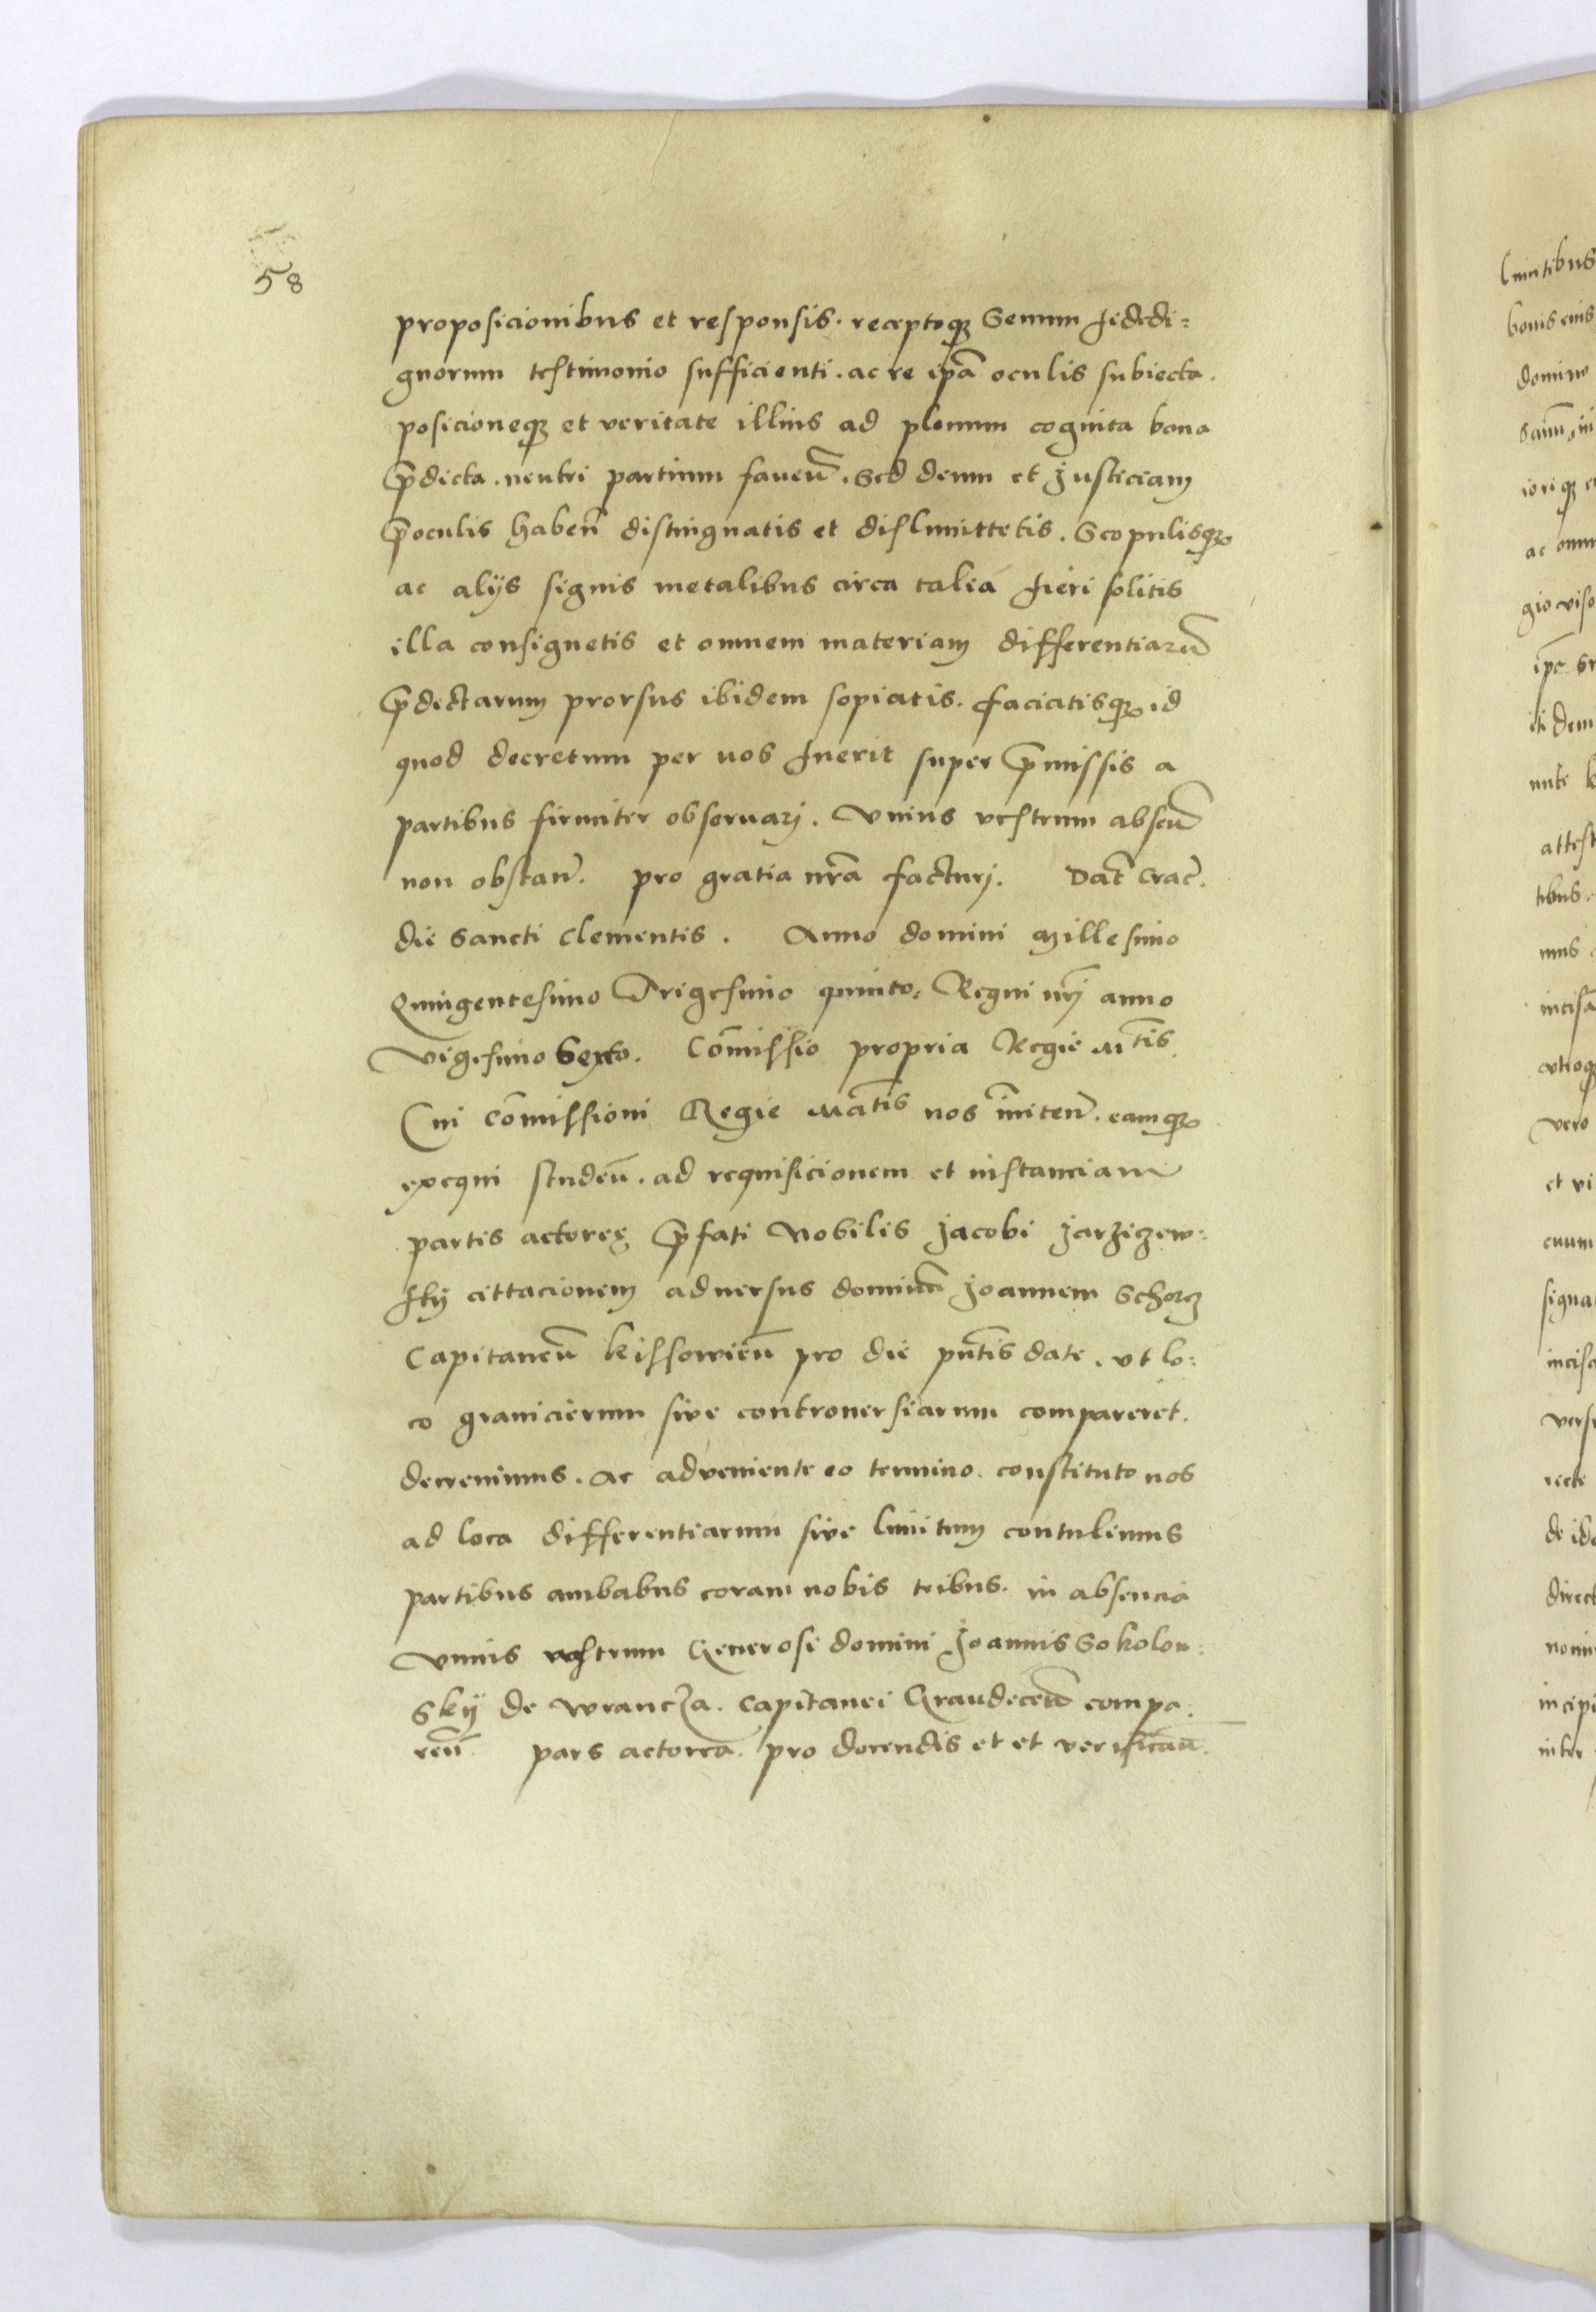 58
proposicionibus et responsis. receptoq; Senum fidedi=
gnorum testimonio sufficienti. ac re ip̄a oculis subiecta.
posicioneq; et veritate illius ad plenum cognita bona
p̄dicta. neutri partium faven̄. Sed deum et Justiciam
p̄ oculis haben̄ distinguatis et dislimittetis. Scopulisq;
ac alijs signis metalibus circa talia fieri solitis
illa consignetis et omnem materiam differentiarū
p̄dictarum prorsus ibidem sopiatis. faciatisq; id
quod decretum per uos fuerit super p̄missis a
partibus firmiter obseruarj. Vnius vestrum absen̄
non obstan̄. pro gratia nr̄a facturj. Dat̄ Crac̄.
die Sancti Clementis. Anno domini Millesimo
Quingentesimo Trigesimo quinto. Regni nr̄j anno
Vigesimo Sexto. Com̄issio propria Regie M̄tis.
Cui Com̄issioni Regie Ma̅tis nos īniten̄. eamq;
exequi studen̄. ad requisicionem et instanciam
partis actoree p̄fati Nobilis Jacobi Jarziczew=
skij cittacionem aduersus dominū Joannem Schorcz
Capitaneū kissowien̄ pro die pn̄tis date. vt lo=
co granicierum sive controuersiarum compareret.
decreuimus. Ac adveniente eo termino. constituto nos
ad loca differentiarum sive limitum contulimus
partibus ambabus coram nobis tribus. in absencia
Vnius vestrum Generosi domini Joannis Sokolow=
skij de Wrancza. Capitanei Graudecen̄ compa=
ren̄. pars actorea. pro docendis et et verifican̄.
limitibus
bonis eius
domino
ioriq; et
gio viso
ip̄e
attest
tibus.
incisa
vero
et vi
signa
incisa
vers
de ide
direct
incipi
inter